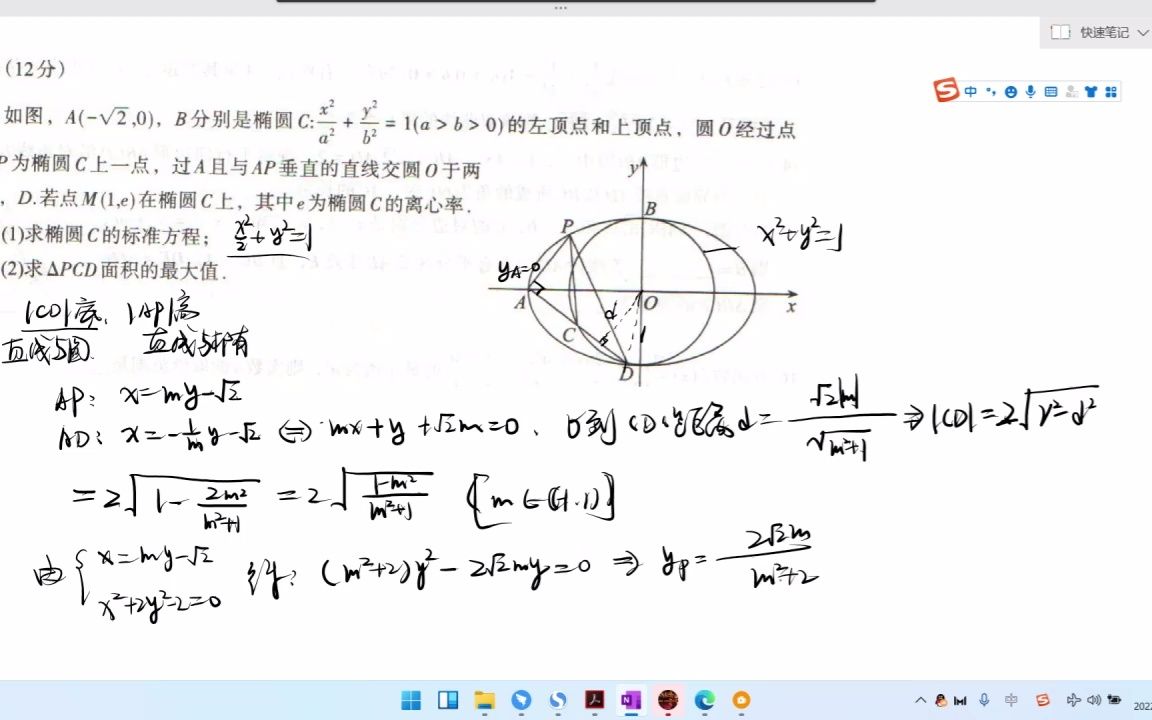 快速笔记
(12分)
中
如图，A(-√2,0)，B分别是椭圆C:x²/a²+y²/b²=1(a>b>0)的左顶点和上顶点，圆O经过点
P为椭圆C上一点，过A且与AP垂直的直线交圆O于两
，D.若点M(1,e)在椭圆C上，其中e为椭圆C的离心率.
(1)求椭圆C的标准方程； x²/2+y²=1
(2)求△PCD面积的最大值.
y
B
P
x²+y²=1
y_A=0
A
O
x
d
1
C
D
|CD|高、|AP|高
直线与圆 直线与椭圆
AP: x=my-√2
AD: x=-1/m y-√2 ⇔ mx+y+√2m=0、O到CD的距离d=√2|m|/√(m²+1) ⇒|CD|=2√(r²-d²)
=2√(1-2m²/(m²+1)) =2√((1-m²)/(m²+1)) [m∈(-1,1)]
由{x=my-√2
x²+2y²-2=0
得: (m²+2)y²-2√2my=0 ⇒ y_P=2√2m/(m²+2)
中
2022